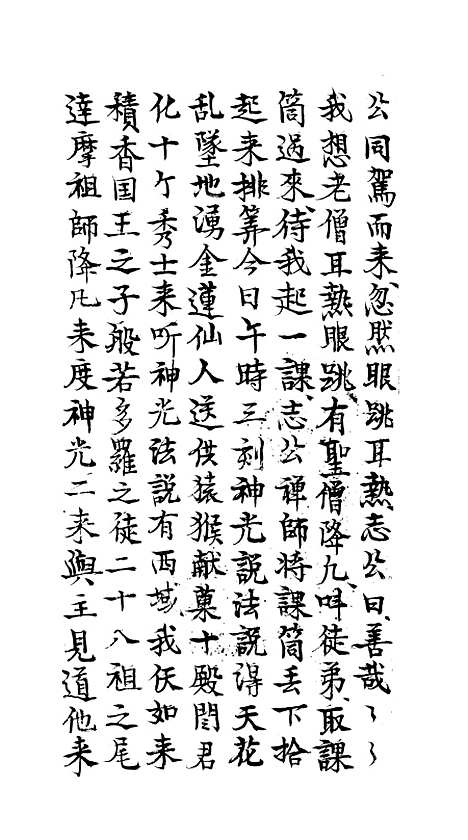 公同駕而来忽然眼跳耳熱志公曰善哉〻〻
我想老僧耳熱眼跳有聖僧降九叫徒弟取課
筒过來待我起一課志公禅師将課筒丢下拾
起来排筭今日午時三刻神光說法說得天花
乱墜地湧金蓮仙人送供猿猴献菓十殿閻君
化十个秀士来听神光法說有西域我佞如来
積香国王之子般若多羅之徒二十八祖之尾
達摩祖師降凢来度神光二来與主見道他来